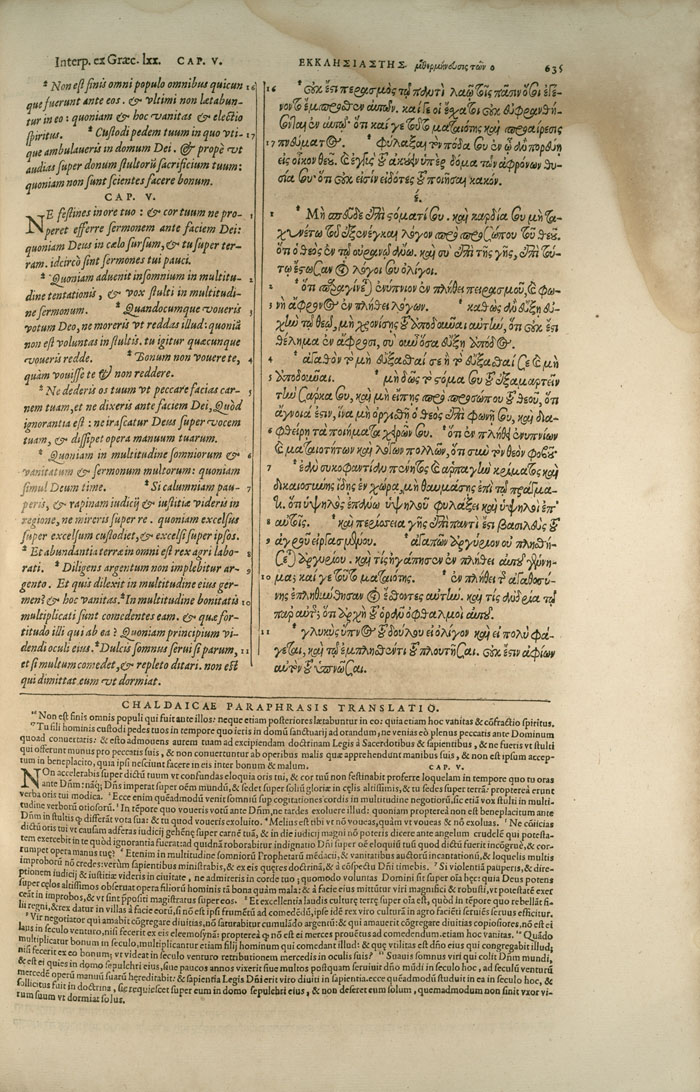 Interp. ex Græc. lxx. CAP. V.
ΕΚΚΛΗΣΙΑΣΤΗΣ
635
Non est finis omni populo omnibus quicun
que fuerunt ante eos. & vltimi non lætabun-
tur in eo: quoniam & hoc vanitas & electio
spiritus. Custodi pedem tuum in quo vti-
que ambulaueris in domum Dei. & propè vt
audias super donum stultorũ sacrificium tuum:
quoniam non sunt scientes facere bonum.
CAP. V.
NE festines in ore tuo: & cor tuum ne pro-
peret efferre sermonem ante faciem Dei:
quoniam Deus in cælo sursum, & tu super ter-
ram. idcircò sint sermones tui pauci.
Quoniam aduenit insomnium in multitu-
dine tentationis, & vox stulti in multitudi-
ne sermonum. Quandocumque voueris
votum Deo, ne moreris vt reddas illud: quoniã
non est voluntas in stultis. tu igitur quæcunque
voueris redde. Bonum non vouere te,
quàm vouisse te & non reddere.
Ne dederis os tuum vt peccare facias car-
nem tuam, et ne dixeris ante faciem Dei, Quòd
ignorantia est: ne irascatur Deus super vocem
tuam, & dissipet opera manuum tuarum.
Quoniam in multitudine somniorum &
vanitatum & sermonum multorum: quoniam
simul Deum time. Si calumniam pau-
peris, & rapinam iudicij & iustitiæ videris in
regione, ne mireris super re. quoniam excelsus
super excelsum custodiet, & excelsi super ipsos.
Et abundantia terræ in omni est rex agri labo-
rati. Diligens argentum non implebitur ar-
gento. Et quis dilexit in multitudine eius ger-
men? & hoc vanitas. In multitudine bonitatis
multiplicati sunt comedentes eam. & quæ for-
titudo illi qui ab ea? Quoniam principium vi-
dendi oculi eius. Dulcis somnus serui si parum,
et si multum comedet, & repleto ditari. non est
qui dimittat eum vt dormiat.
16
17
1
2
3
4
5
6
7
8
9
10
11
οὐκ ἔστι περασμὸς τῷ παντὶ λαῷ τοῖς πᾶσιν ὅσοι ἐγέ-
νοντο ἔμπροσθεν αὐτῶν. καί γε οἱ ἔσχατοι οὐκ εὐφρανθή-
σονται ἐν αὐτῷ· ὅτι καί γε τοῦτο ματαιότης καὶ προαίρεσις
πνεύματος. φύλαξαι τὸν πόδα σου ἐν ᾧ ἐὰν πορεύῃ
εἰς οἶκον θεοῦ.
σία σου· ὅτι οὐκ εἰσὶν εἰδότες τοῦ ποιῆσαι κακόν.
έ.
Μὴ σπεῦδε ἐπὶ στόματί σου. καὶ καρδία σου μὴ τα-
χυνέτω τοῦ ἐξενέγκαι λόγον πρὸ προσώπου τοῦ θεοῦ.
ὅτι ὁ θεὸς ἐν τῷ οὐρανῷ ἄνω. καὶ σὺ ἐπὶ τῆς γῆς, ἐπὶ τού-
τῳ ἔστωσαν οἱ λόγοι σου ὀλίγοι.
ὅτι παραγίνεται ἐνύπνιον ἐν πλήθει πειρασμοῦ, καὶ φω-
νὴ ἄφρονος ἐν πλήθει λόγων. καθὼς ἂν εὔξῃ εὐ-
χὴν τῷ θεῷ, μὴ χρονίσῃς τοῦ ἀποδοῦναι αὐτὴν, ὅτι οὐκ ἔστι
θέλημα ἐν ἄφροσι, σὺ οὖν ὅσα ἐὰν εὔξῃ ἀπόδος.
ἀγαθὸν τὸ μὴ εὔξασθαί σε ἢ τὸ εὔξασθαί σε καὶ μὴ
ἀποδοῦναι. μὴ δῷς τὸ στόμα σου τοῦ ἐξαμαρτεῖν
τὴν σάρκα σου, καὶ μὴ εἴπῃς πρὸ προσώπου τοῦ θεοῦ, ὅτι
ἄγνοιά ἐστιν, ἵνα μὴ ὀργισθῇ ὁ θεὸς ἐπὶ φωνῇ σου, καὶ δια-
φθείρῃ τὰ ποιήματα χειρῶν σου. ὅτι ἐν πλήθει ἐνυπνίων
καὶ ματαιοτήτων καὶ λόγων πολλῶν, ὅτι σὺν τὸν θεὸν φοβοῦ
ἐὰν συκοφαντίαν πένητος καὶ ἁρπαγὴν κρίματος καὶ
δικαιοσύνης ἴδῃς ἐν χώρᾳ, μὴ θαυμάσῃς ἐπὶ τῷ πράγμα-
τι. ὅτι ὑψηλὸς ἐπάνω ὑψηλοῦ φυλάξαι καὶ ὑψηλοὶ ἐπ'
αὐτοῖς. καὶ περισσεία γῆς ἐπὶ παντί ἐστι βασιλεὺς τοῦ
ἀγροῦ εἰργασμένου. ἀγαπῶν ἀργύριον οὐ πλησθή-
σεται ἀργυρίου. καὶ τίς ἠγάπησεν ἐν πλήθει αὐτοῦ γέννη-
μα; καί γε τοῦτο ματαιότης. ἐν πλήθει τῆς ἀγαθοσύ-
νης ἐπληθύνθησαν οἱ ἔσθοντες αὐτήν. καὶ τίς ἀνδρεία τῷ
παρ' αὐτῆς; ὅτι ἀρχὴ τοῦ ὁρᾶν ὀφθαλμοὶ αὐτοῦ.
γλυκὺς ὕπνος τοῦ δούλου εἰ ὀλίγον καὶ εἰ πολὺ φά-
γεται, καὶ τῷ ἐμπλησθέντι τοῦ πλουτῆσαι. οὐκ ἔστιν ἀφίων
αὐτὸν τοῦ ὑπνῶσαι.
CHALDAICAE PARAPHRASIS TRANSLATIO.
Non est finis omnis populi qui fuit ante illos: neque etiam posteriores lætabuntur in eo: quia etiam hoc vanitas & cõfractio spiritus.
Tu fili hominis custodi pedes tuos in tempore quo ieris in domũ sanctuarij ad orandum, ne venias eò plenus peccatis ante Dominum
quoad conuertaris: & esto admouens aurem tuam ad excipiendam doctrinam Legis à Sacerdotibus & sapientibus, & ne fueris vt stulti
qui offerunt munus pro peccatis suis, & non conuertuntur ab operibus malis quæ apprehendunt manibus suis, & non est ipsum accep-
tum in beneplacito, quia ipsi nesciunt facere in eis inter bonum & malum. CAP. V.
NOn accelerabis super dictũ tuum vt confundas eloquia oris tui, & cor tuũ non festinabit proferre loquelam in tempore quo tu oras
ante Dñm: nãq; Dñs imperat super oẽm mundũ, & sedet super soliũ gloriæ in cęlis altissimis, & tu sedes super terrã: propterea erunt
verba oris tui modica. Ecce enim quẽadmodũ venit somniũ sup cogitationes cordis in multitudine negotiorũ, sic etiã vox stulti in multi-
tudine verborũ otiosorũ. In tẽpore quo voueris votũ ante Dñm, ne tardes exoluere illud: quoniam propterea non est beneplacitum ante
Dñm in stultis q; differãt vota sua: & tu quod voueris exoluito. Melius est tibi vt nõ voueas, quàm vt voueas & nõ exoluas. Ne cõijcias
dictũ oris tui vt causam adferas iudicij gehẽnę super carnẽ tuã, & in die iudicij magni nõ poteris dicere ante angelum crudelẽ qui potesta-
tem exercebit in te quòd ignorantia fuerat: ad quidnã roborabitur indignatio Dñi super oẽ eloquiũ tuũ quod dictũ fuerit incõgruè, & cor-
rumpet opera manus tuę? Etenim in multitudine somniorũ Prophetarũ mẽdaciũ, & vanitatibus auctorũ incantationũ, & loquelis multis
improborũ nõ credes: verùm sapientibus ministrabis, & ex eis quæres doctrinã, & à cõspectu Dñi timebis. Si violentiã pauperis, & dire-
ptionem iudicij & iustitiæ videris in ciuitate, ne admireris in corde tuo; quomodo voluntas Domini sit super oĩa hęc: quia Deus potens
super cęlos altissimos obseruat opera filiorũ hominis tã bona quàm mala: & à facie eius mittũtur viri magnifici & robusti, vt potestatẽ exer
ceãt in improbos, & vt sint ppositi magistratus super eos. Et excellentia laudis culturę terrę super oĩa est, quòd in tẽpore quo rebellãt fi-
lij regni, & rex datur in villas à facie eorũ, si nõ est ipsi frumẽtũ ad comedẽdũ, ipse idẽ rex viro cultura in agro faciẽti seruiẽs seruus efficitur.
Vir negotiator qui amabit cõgregare diuitias, nõ saturabitur cumulãdo argentũ: & qui amauerit cõgregare diuitias copiosiores, nõ est ei
laus in seculo venturo, nisi fecerit ex eis eleemosynã: propterea q; nõ est ei merces prouẽtus ad comedentum. etiam hoc vanitas. Quãdo
multiplicatur bonum in seculo, multiplicantur etiam filij hominum qui comedant illud: & quę vtilitas est dño eius qui congregabit illud,
nisi fecerit ex eo bonum; vt videat in seculo venturo retributionem mercedis in oculis suis? Suauis somnus viri qui colit Dñm mundi,
& est ei quies in domo sepulchri eius, siue paucos annos vixerit siue multos postquam seruiuit dño mũdi in seculo hoc, ad seculũ venturũ
mercedẽ operũ manuũ suarũ hereditabit: & sapientia Legis Dñi erit viro diuiti in sapientia. ecce quẽadmodũ studuit in ea in seculo hoc, &
sollicitus fuit in doctrina, sic requiescet super eum in domo sepulchri eius, & non deseret eum solum, quemadmodum non sinit vxor vi-
rum suum vt dormiat solus.